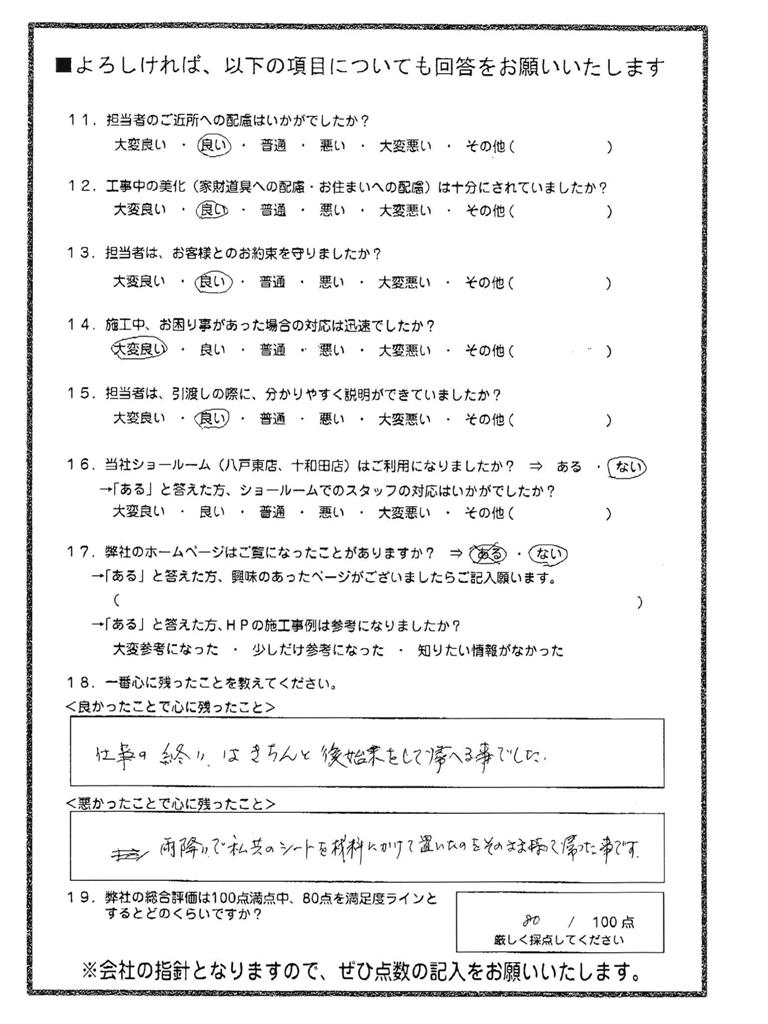 ■よろしければ、以下の項目についても回答をお願いいたします
11．担当者のご近所への配慮はいかがでしたか？
大変良い ・ 良い ・ 普通 ・ 悪い ・ 大変悪い ・ その他（ ）
12．工事中の美化（家財道具への配慮・お住まいへの配慮）は十分にされていましたか？
大変良い ・ 良い ・ 普通 ・ 悪い ・ 大変悪い ・ その他（ ）
13．担当者は、お客様とのお約束を守りましたか？
大変良い ・ 良い ・ 普通 ・ 悪い ・ 大変悪い ・ その他（ ）
14．施工中、お困り事があった場合の対応は迅速でしたか？
大変良い ・ 良い ・ 普通 ・ 悪い ・ 大変悪い ・ その他（ ）
15．担当者は、引渡しの際に、分かりやすく説明ができていましたか？
大変良い ・ 良い ・ 普通 ・ 悪い ・ 大変悪い ・ その他（ ）
16．当社ショールーム（八戸東店、十和田店）はご利用になりましたか？ ⇒ ある ・ ない
→「ある」と答えた方、ショールームでのスタッフの対応はいかがでしたか？
大変良い ・ 良い ・ 普通 ・ 悪い ・ 大変悪い ・ その他（ ）
17．弊社のホームページはご覧になったことがありますか？ ⇒ ある ・ ない
→「ある」と答えた方、興味のあったページがございましたらご記入願います。
（ ）
→「ある」と答えた方、ＨＰの施工事例は参考になりましたか？
大変参考になった ・ 少しだけ参考になった ・ 知りたい情報がなかった
18．一番心に残ったことを教えてください。
＜良かったことで心に残ったこと＞
仕事の終りはきちんと後始末をして帰へる事でした。
＜悪かったことで心に残ったこと＞
雨降りで私共のシートを材料にかけて置いたのをそのまま持って帰った事です。
19．弊社の総合評価は100点満点中、80点を満足度ラインと
するとどのくらいですか？
80 / 100点
厳しく採点してください
※会社の指針となりますので、ぜひ点数の記入をお願いいたします。